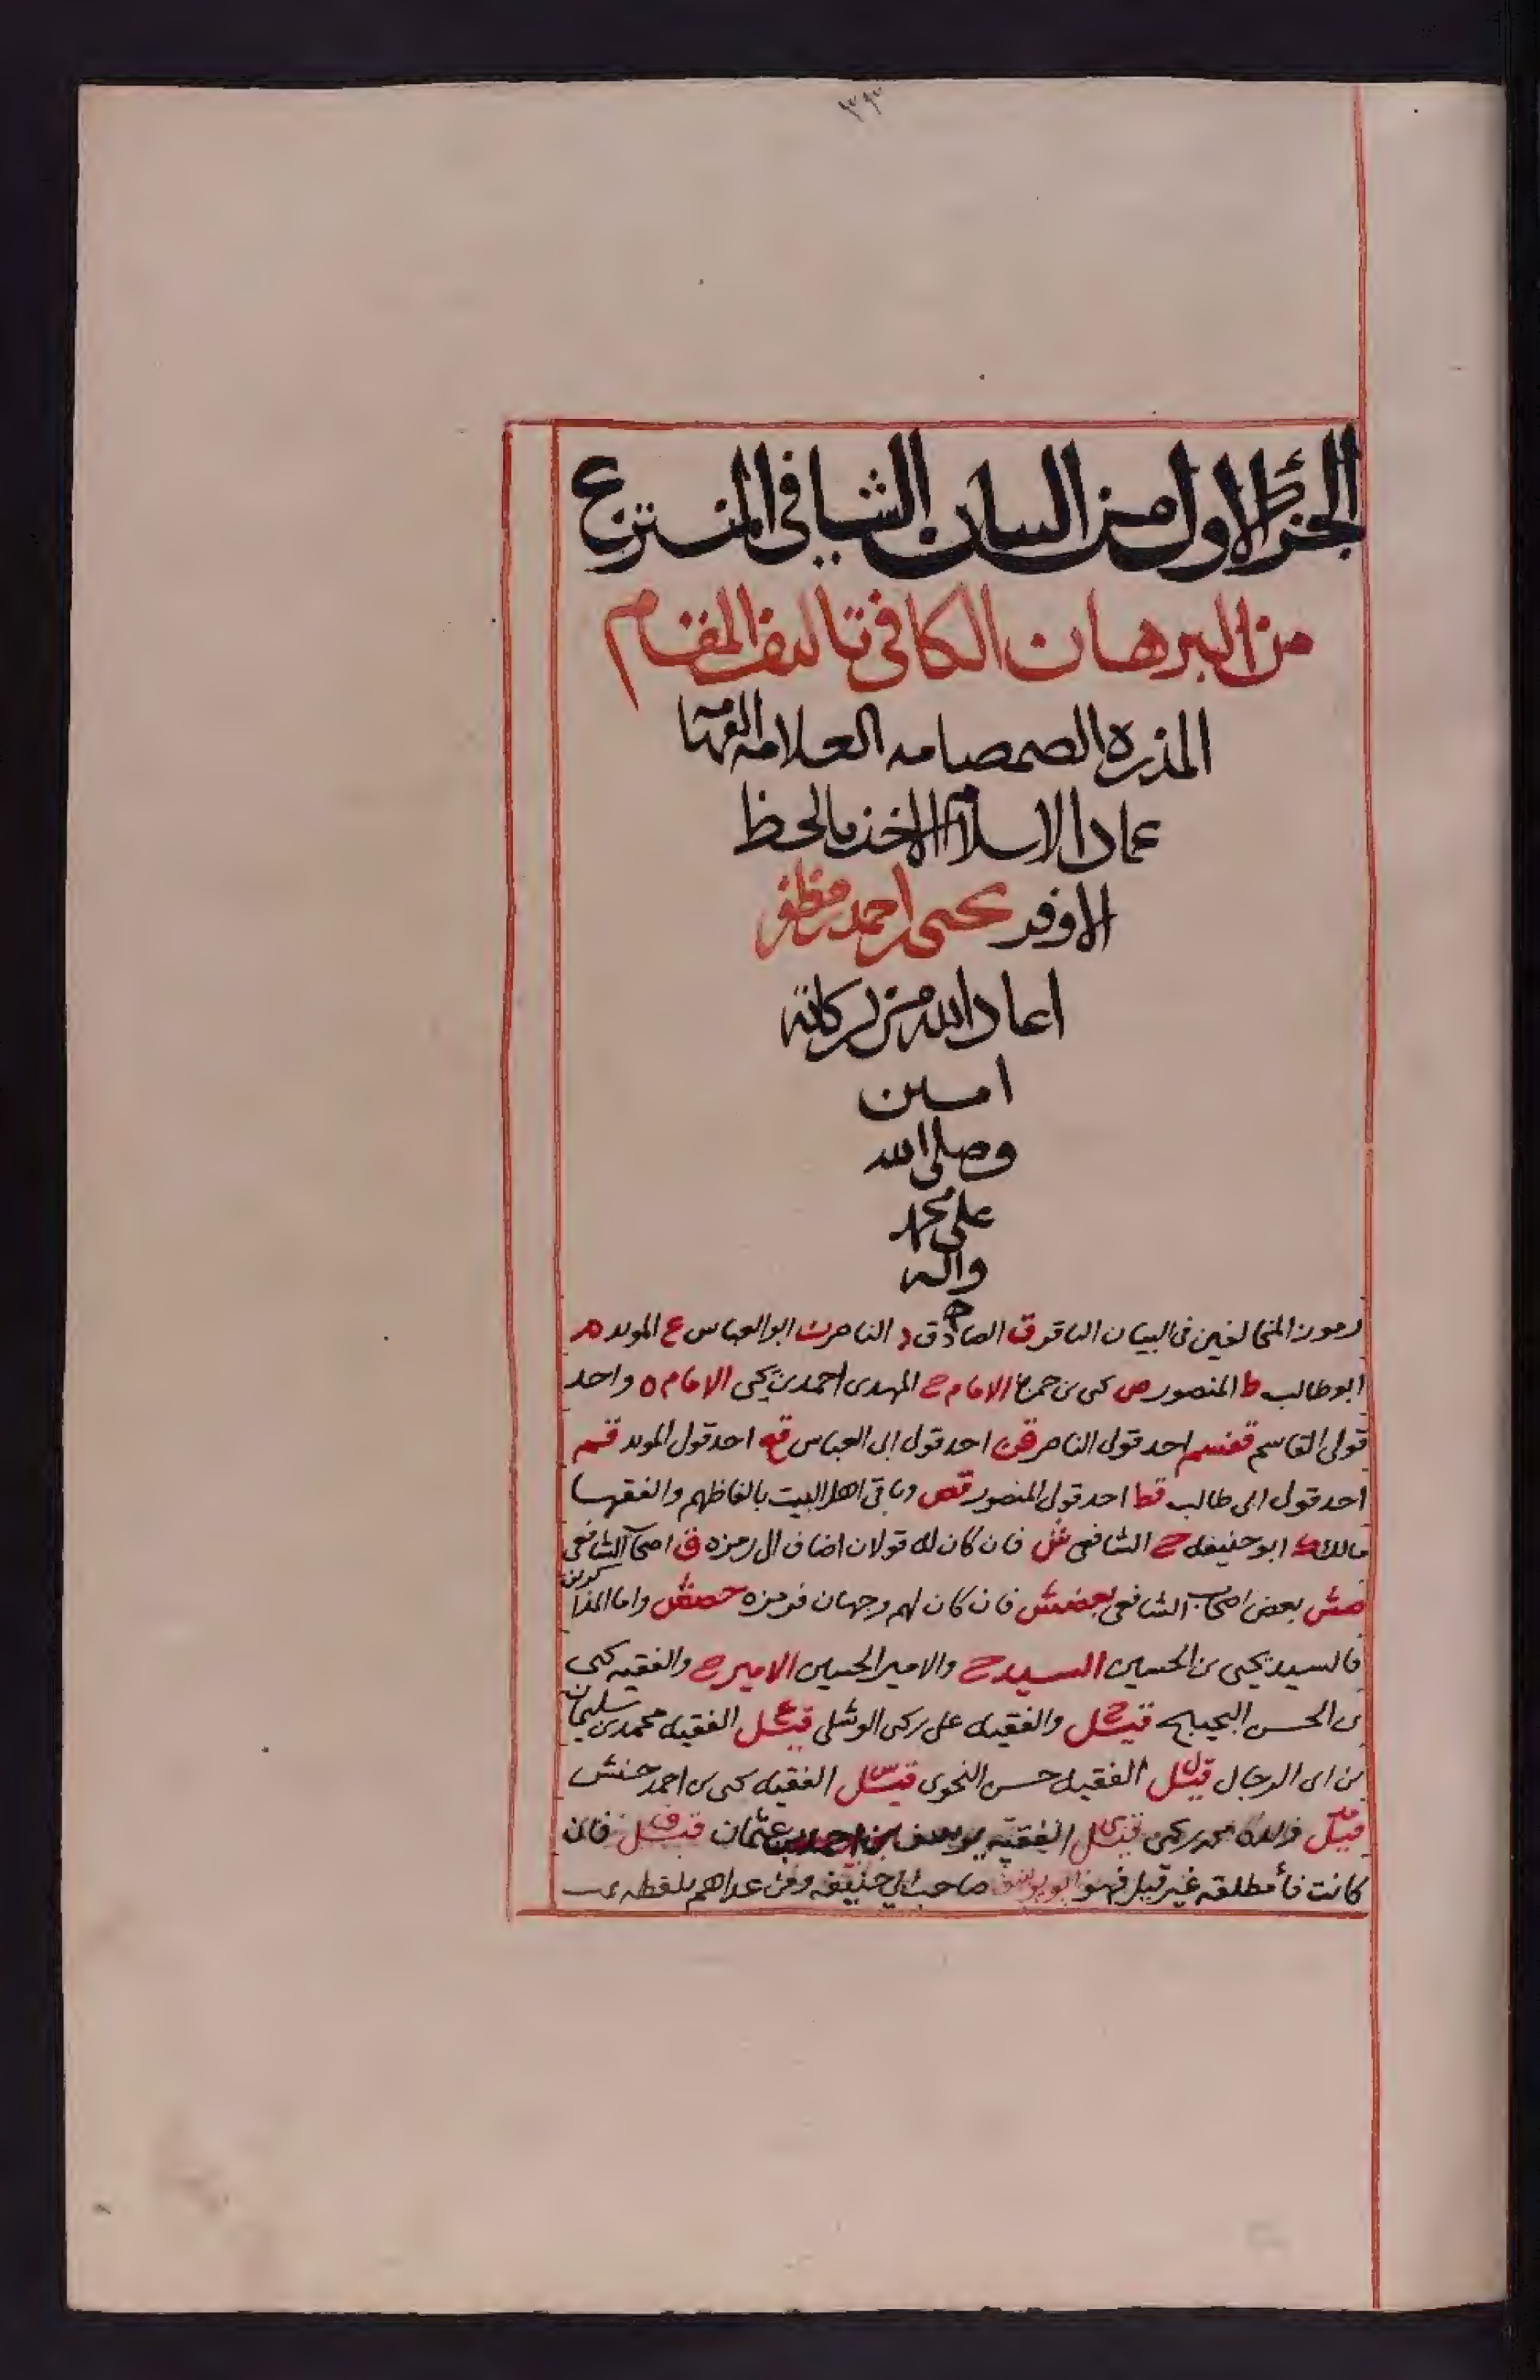 ٣٩٣
الجزء الاول من البيان الشافي المنتزع
من البرهان الكافي تاليف المقام
المذره الصمصامه العلامه الفهامه
عماد الاسلام الاخذ بالحظ
الاوفر يحيى بن احمد بن مظفر
اعاد الله من بركاته
امين
وصلى الله
على محمد
واله
رموز المخالفين في البيان الباقر ق الصادق د الناصر ن ابو العباس ع المويد م
ابو طالب ط المنصور ص يحي بن حمزة الامام ح المهدى احمد بن يحيى الامام ه واحد
قولى القاسم احد قول الناصر قن احد قول ابى العباس قع احد قول المويد قم
احد قول ابى طالب قط احد قول المنصور قص وباقى اهل البيت بالفاظهم والفقها
مالك ك ابو حنيفه ح الشافعى ش فان كان له قولان اضاف الى رمزه ق اصحاب الشافعى
صش بعض اصحاب الشافعى بعضش فان كان لهم وجهان فرمزه واما المذاكرون
فالسيد يحيى بن الحسين السيد ح والامير الحسين الامير ح والفقيه يحيى
بن الحسن البحيبح قيل ح والفقيه على بن يحيى الوشلى قيل ع الفقيه محمد بن سليمان
بن ابى الرجال قيل ل الفقيه حسن النحوى قيل س الفقيه يحيى بن احمد حنش
قيل والده محمد بن يحيى قيل ى الفقيه يوسف بن احمد بن عثمان قيل ف فان
كانت فأ مطلقه غير قيل فهو ابو يوسف صاحب ابي حنيفه ومن عداهم بلفظه